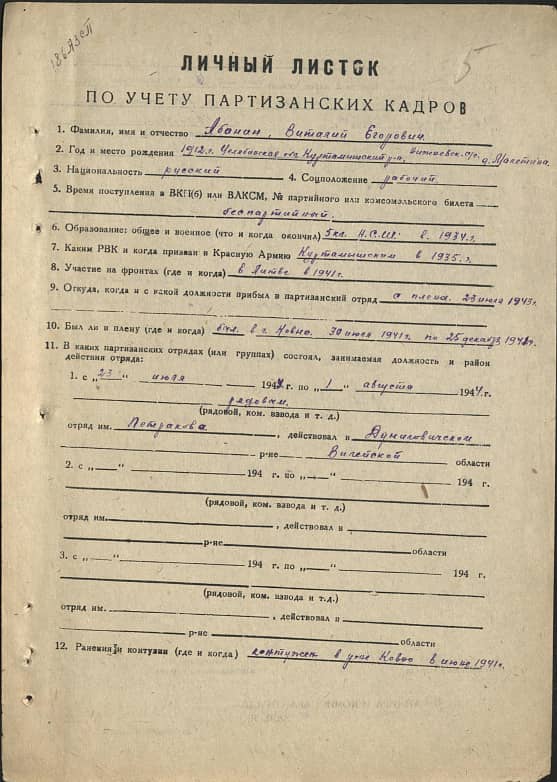 186 АЗСП
5
ЛИЧНЫЙ ЛИСТОК
ПО УЧЕТУ ПАРТИЗАНСКИХ КАДРОВ
1. Фамилия, имя и отчество Абанин, Виталий Егорович
2. Год и место рождения 1912 г. Челябинская обл Куртамышский р-н, с/с. д. Макетина
3. Национальность русский 4. Соцположение рабочий
5. Время поступления в ВКП(б) или ВЛКСМ, № партийного или комсомольского билета
беспартийный.
6. Образование: общее и военное (что и когда окончил) 5кл. Н.С.Ш. в 1934 г.
7. Каким РВК и когда призван в Красную Армию Куртамышским в 1935 г.
8. Участие на фронтах (где и когда) в Литве в 1941 г.
9. Откуда, когда и с какой должности прибыл в партизанский отряд с плена. 23 июля 1943 г.
10. Был ли в плену (где и когда) был. в г. Ковно. 30 июня 1941 г. по 25 декабря
11. В каких партизанских отрядах (или группах) состоял, занимаемая должность и район
действия отряда:
1. с „23" июля 194 г. по „1" августа 1944 г.
рядовым.
(рядовой, ком. взвода и т. д.)
отряд им. Петракова, действовал в Дуниловичском
р-не Вилейской области
2. с „—" 194 г. по „—" 194 г.
(рядовой, ком. взвода и т. д.)
отряд им., действовал в
р-не области
3. с „—" 194 г. по „—" 194 г.
(рядовой, ком. взвода и т.д.)
отряд им., действовал в
р-не области
12. Ранения и контузии (где и когда) контужен в Ковно в июне 1941 г.